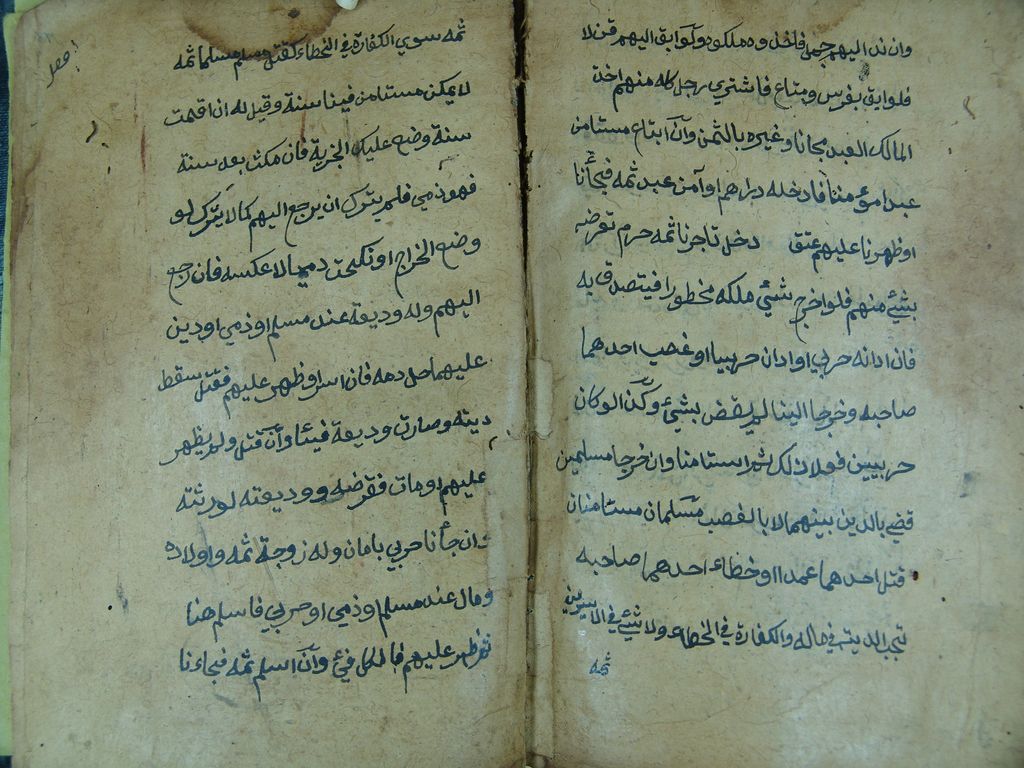 وان ند اليهم جمل فاخذوه ملكوه وكوابق اليهم قن لا
فلوابق بفرس ومتاع فاشتري رجل كله منهم اخذ
المالك العبد مجانا وغيره بالثمن وآن ابتاع مستامن
عبدا مومننا فادخله دارهم او آمن عبد ثمه فجأنا
او ظهرنا عليهم عتق دخل تاجرنا ثمه حرم تعرضه
بشئ منهم فلو اخرج شئي ملكه محظورا فيتصدق به
فان ادانه حربي او ادان حربيا او غصب احدهما
صاحبه وخرجا الينا لم يقض بشئ وكذا لو كان
حربيين فعلا ذلك ثم استامنا وان خرجا مسلمين
قضي بالدين بينهما لا بالغصب مسلمان مستامنان
قتل احدهما عمدا او خطاء احدهما صاحبه
تجب الدية في ماله والكفارة في الخطاء ولا شئي في الاسيرين
ثمه
فصل
ثمه سوي الكفارة في الخطاء كقتل مسلم مسلما ثمه
لا يمكن مستامن فينا سنة وقيل له ان اقمت
سنة وضع عليك الجزية فان مكث بعد سنة
فهو ذمي فلم يترك ان يرجع اليهم كما لا يترك لو
وضع الخراج او نكحت ذميا لا عكسه فان رجع
اليهم وله وديعة عند مسلم او ذمي او دين
عليهما حل دمه فان اسر او ظهر عليهم فقتل سقط
دينه وصارت وديعة فيئا وآن قتل ولم يظهر
عليهم او مات فقرضه ووديعته لورثته
وان جأنا حربي بامان وله زوجة ثمه واولاده
ومال عند مسلم او ذمي او حربي فاسلم هنا
ثم ظهر عليهم فالكل فئ وآن اسلم ثمه فجاءنا